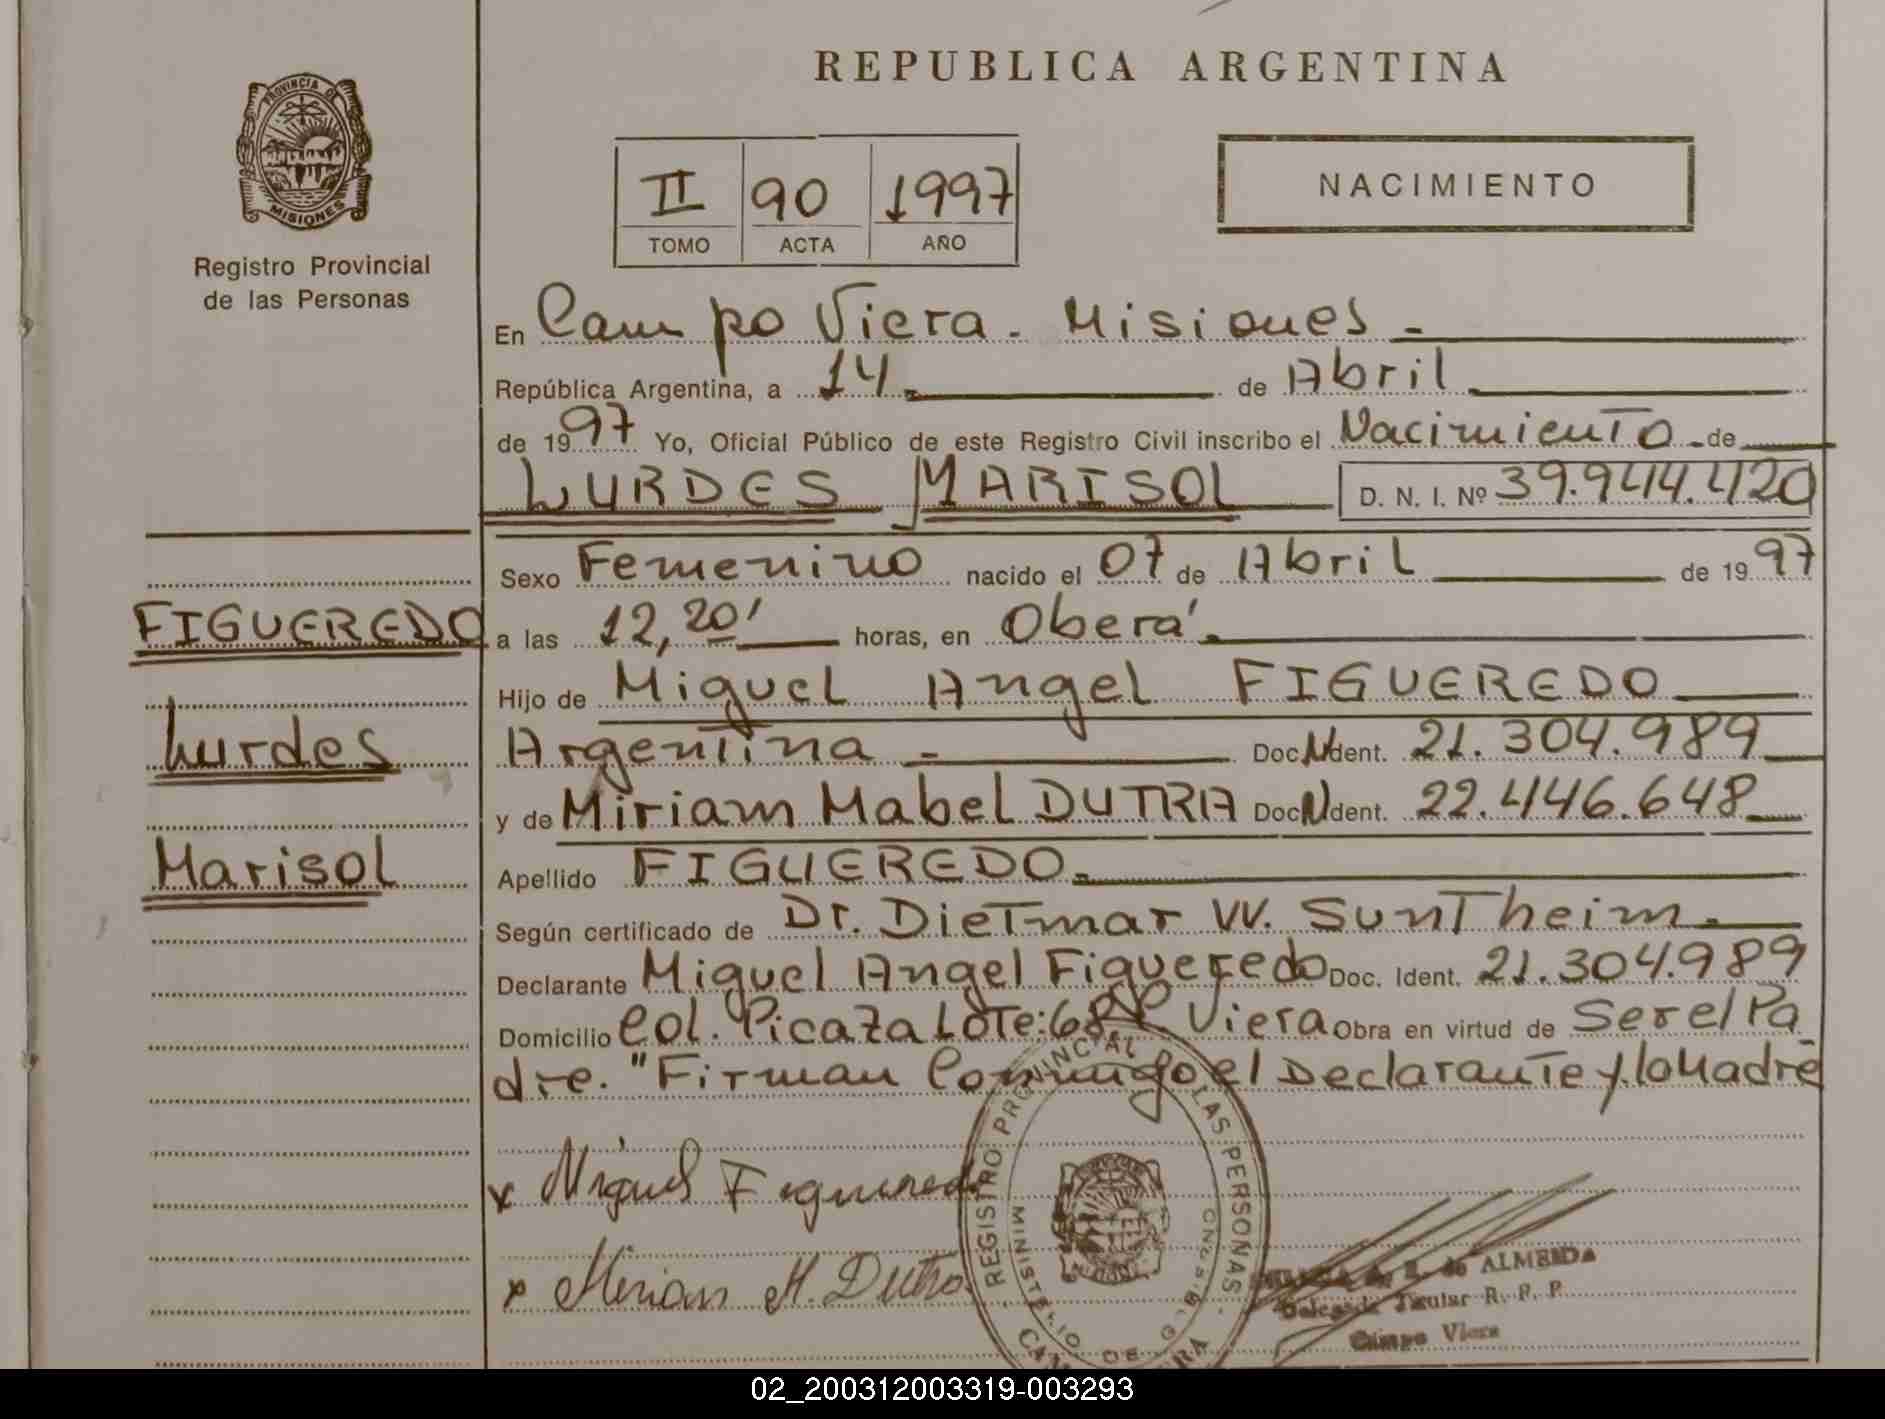 REPUBLICA ARGENTINA
PROVINCIA DE
MISIONES
Registro Provincial
de las Personas
II 90 1997
TOMO ACTA AÑO
NACIMIENTO
En Campo Viera - Misiones -
República Argentina, a 14 de Abril
de 1997 Yo, Oficial Público de este Registro Civil inscribo el Nacimiento de
LURDES MARISOL D. N. I. Nº 39.944.420
Sexo Femenino nacido el 07 de Abril de 1997
a las 12,20' horas, en Oberá
Hijo de Miguel Angel FIGUEREDO
Argentina - Doc. N Ident. 21.304.989
y de Miriam Mabel DUTRA Doc. N Ident. 22.446.648
Apellido FIGUEREDO
Según certificado de Dr. Dietmar W. Suntheim
Declarante Miguel Angel Figueredo Doc. Ident. 21.304.989
Domicilio Col. Picaza Lote: 68 Viera Obra en virtud de Ser el Pa
dre. "Firman Conmigo el Declarante y la Madre
FIGUEREDO
Lurdes
Marisol
x Miguel Figueredo
x Miriam M. Dutra
REGISTRO PROVINCIAL LAS PERSONAS
MINISTERIO DE
de ALMEIDA
Delegada Titular R. P. P.
Campo Viera
02_200312003319-003293